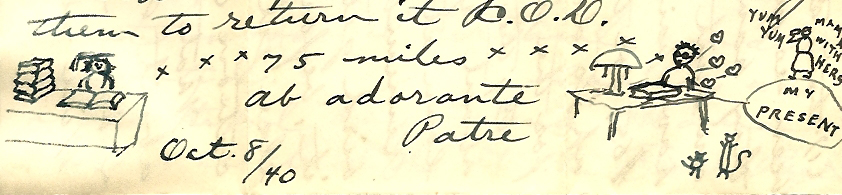 them to return it C.O.D.
x x x 75 miles x x x x x
ab adorante
Patre
Oct. 8/40
YUM
YUM
MAMA
WITH
HERS
MY
PRESENT
US